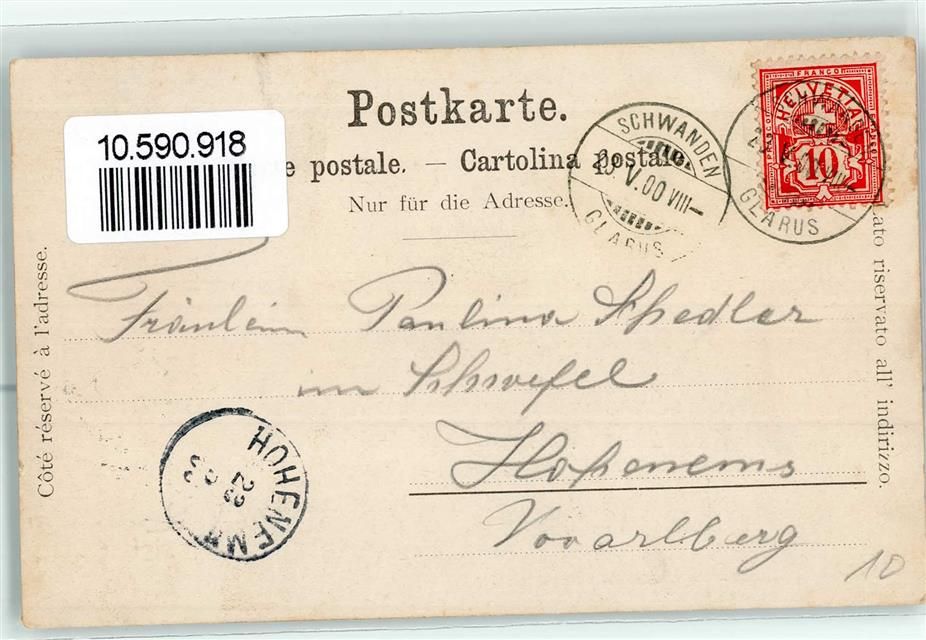 Postkarte.
10.590.918
e postale. — Cartolina postale.
Nur für die Adresse.
SCHWANDEN
V.00 VIII—
GLARUS
FRANCO
HELVETIA
10
GLARUS
Côté réservé à l'adresse.
lato riservato all' indirizzo.
Fräulein Paulina
im Schwefel
Hohenems
Vorarlberg
HOHENEMS
10